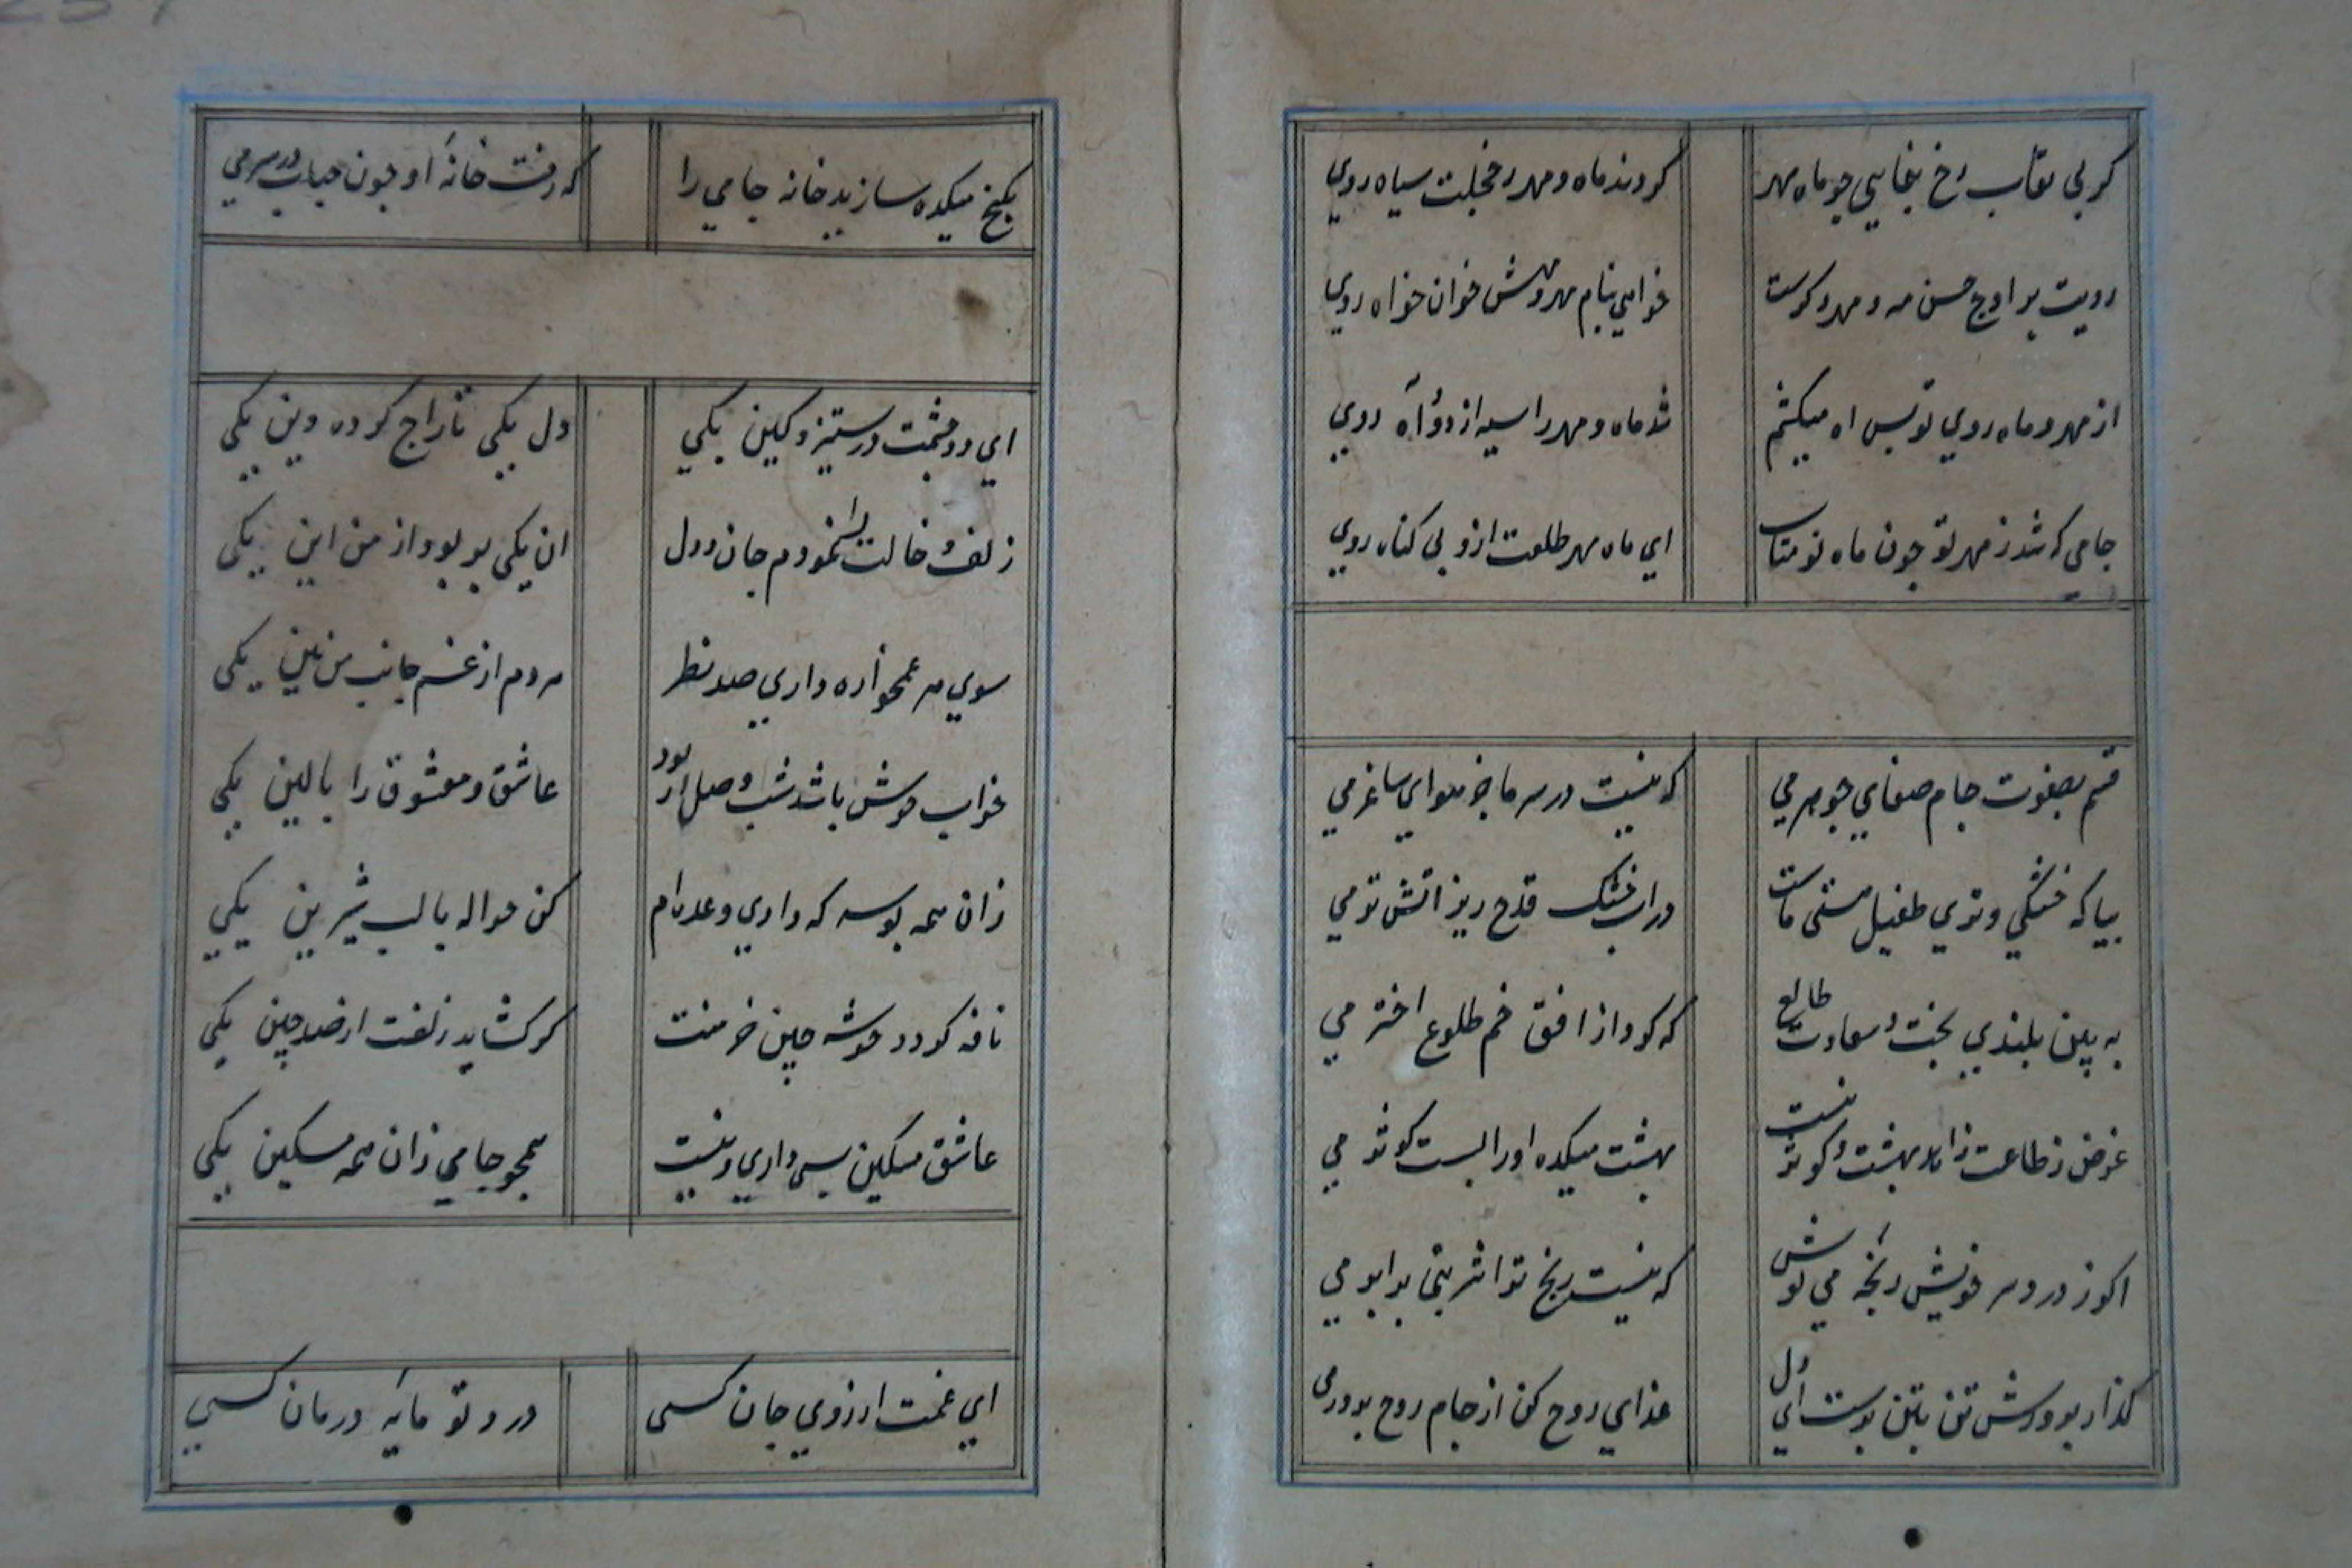 کر بی نقاب رخ بنمایی چو ماه مهر کردند ماه و مهر ز خجلت سیاه روی
رویت بر اوج حسن مه و مهر دکرست خواهی بنام مهر و مهش خوان خواه روی
از مهر و ماه روی تو بس اه میکشم شد ماه و مهر را سیه از دود آه روی
جامی که شد ز مهر تو چون ماه نو متاب ای ماه مهر طلعت ازو بی کناه روی
قسم بصفوت جام صفای جوهر می که نیست در سر ما جز هوای ساغر می
بیا که خشکی و تری طفیل مستی ماست در اب خشک قدح ریز اتش تر می
به بین بلندی بخت و سعادت طالع که کرد از افق خم طلوع اختر می
غرض ز طاعت زاهد بهشت و کوثر نیست بهشت میکده او را بست کوثر می
اکر ز درد سر خویش رنجه می نوش که نیست رنج ترا شربتی برابر می
کذار پرورش تن بتن پرست ای دل غذای روح کن از جام روح پرور می
بکنج میکده سازید خانه جامی را که رفت خانهٔ او چون حباب در سر می
ای دو چشمت در ستیز و کین یکی دل یکی تاراج کرده دین یکی
زلف و خالت را نمودم جان و دل ان یکی بر بود از من این یکی
سوی هر غمخواره داری صد نظر مردم از غم جانب من بین یکی
خواب خوش باشد شب وصل ار بود عاشق و معشوق را بالین یکی
زان همه بوسه که داری وعده ام کن حواله با لب شیرین یکی
نافه کردد خوشه چین خرمنت کر کشاید زلفت از صد چین یکی
عاشق مسکین بسی داری و نیست همچو جامی زان همه مسکین یکی
ای غمت ارزوی جان کسی درد تو مایهٔ درمان کسی